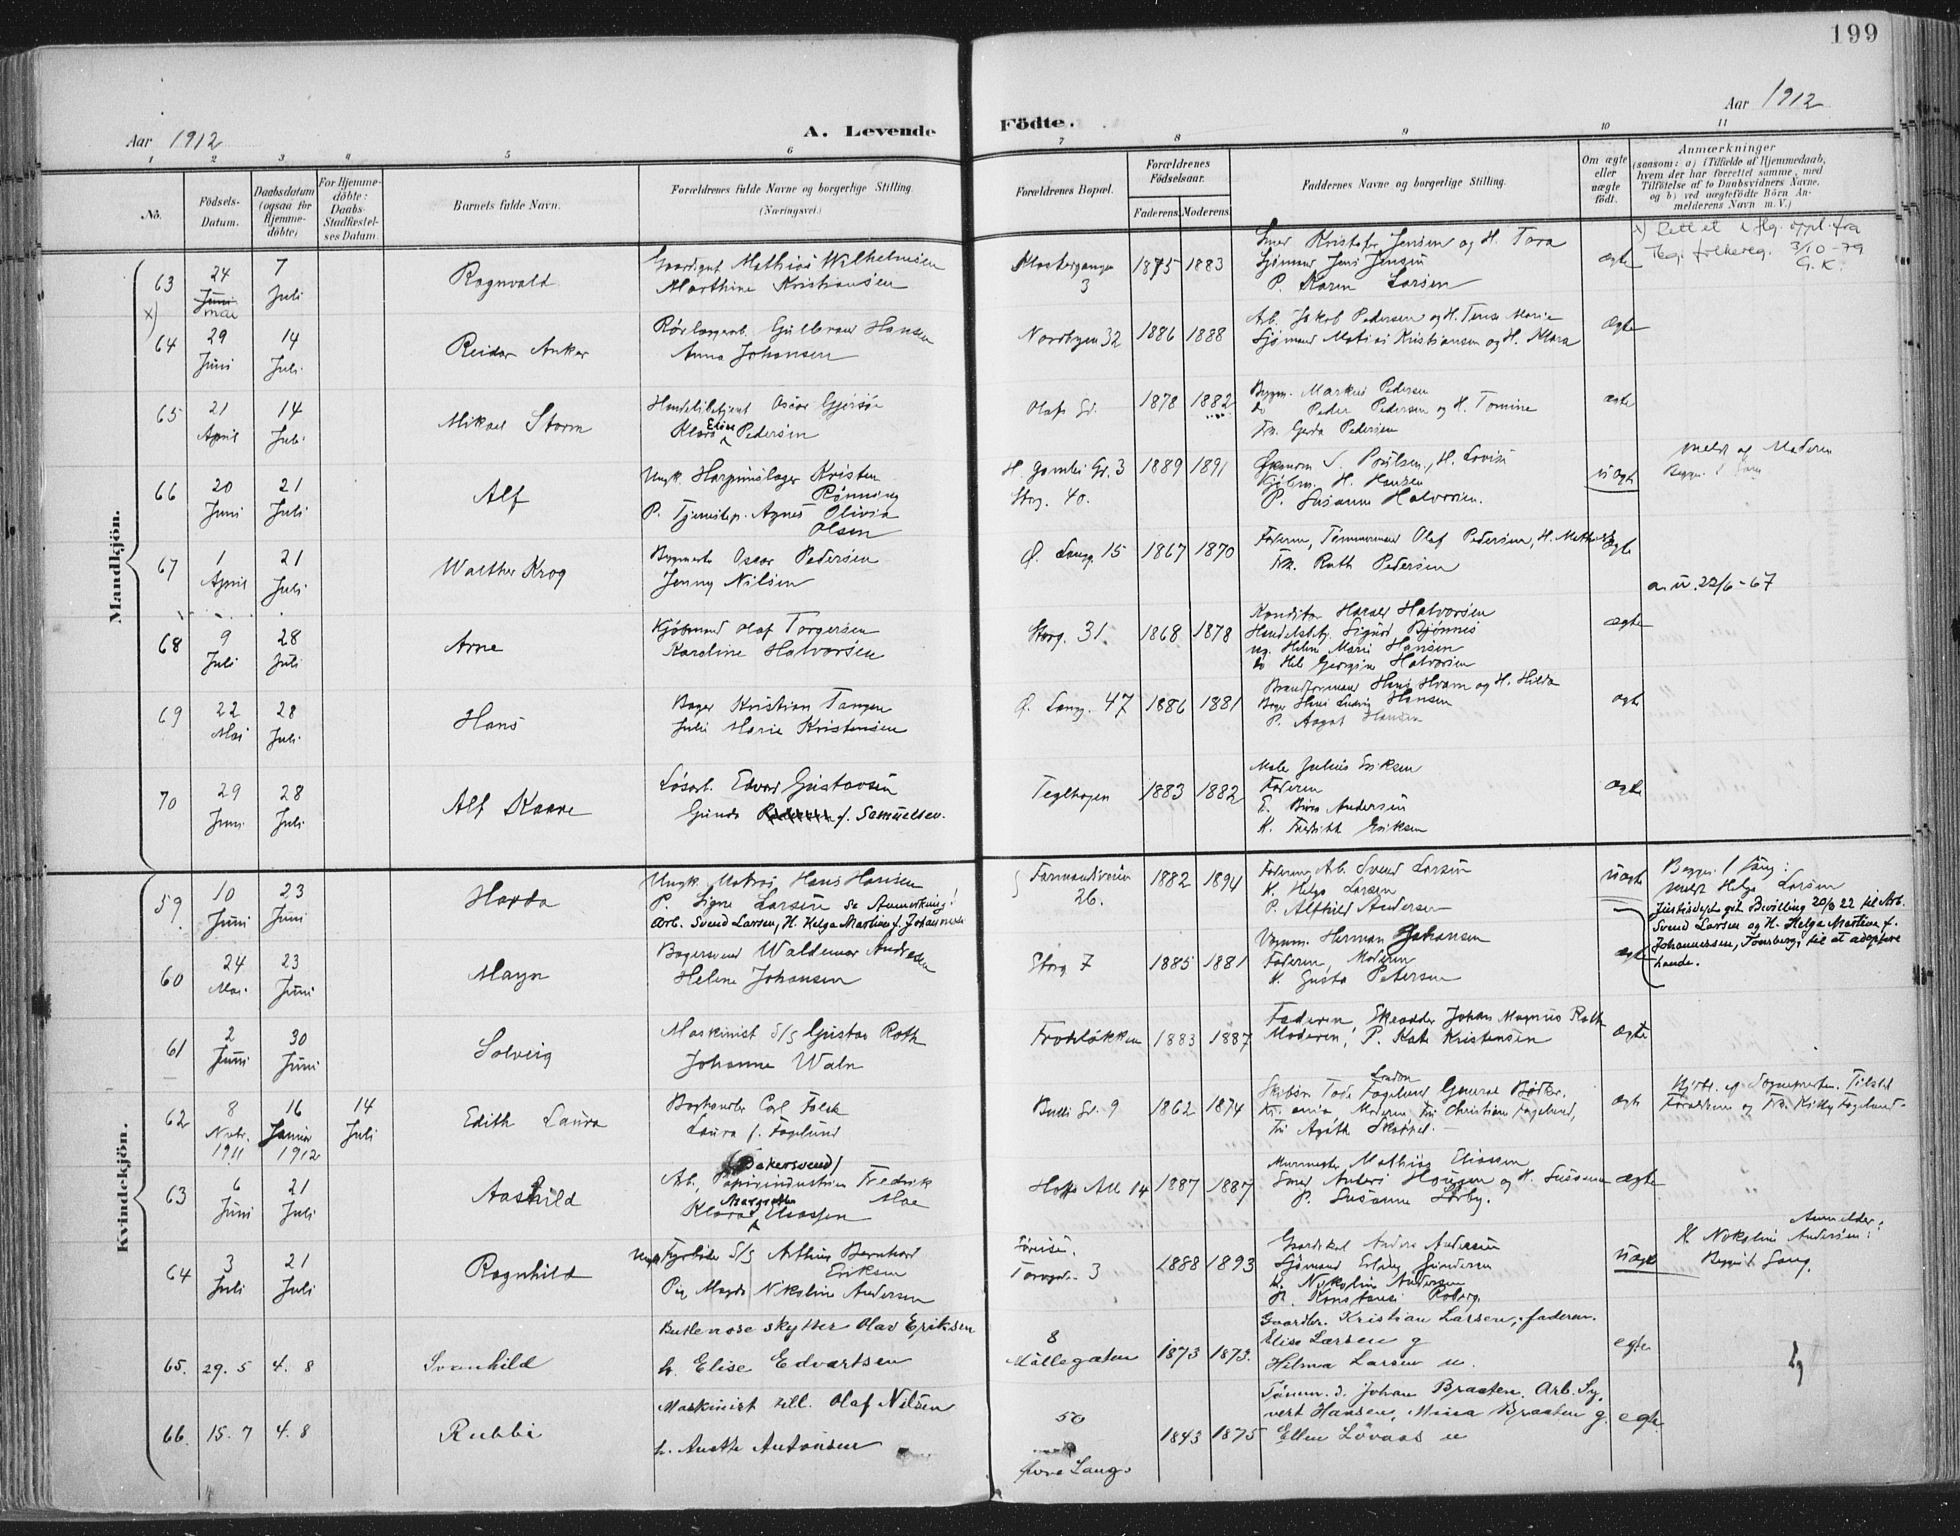 199
Aar 1912
A. Levende
Födte.
Aar 1912
1 2 3 4 5 6 7 8 9 10 11
No.
Födsels-Datum.
Daabsdatum (ogsaa for Hjemme-döbte)
For Hjemme-döbte: Daabs-Stadfæstel-ses Datum.
Barnets fulde Navn.
Forældrenes fulde Navne og borgerlige Stilling. (Næringsvei.)
Forældrenes Bopæl.
Forældrenes Födselsaar.
Faderens Moderens
Faddernes Navne og borgerlige Stilling.
Om ægte eller uægte födt.
Anmærkninger
(saasom: a) i Tilfælde af Hjemmedaab, hvem der har forrettet samme, med Tilföielse af to Daabsvidners Navne, og b) ved uægtefödte Börn An-melderens Navn m. V.)
Mandkjön.
x) Rettet i flg. oppl. fra
Tbg. folkereg. 3/10-79
G.K.
63 24 Juni mai 7 Juli Ragnvald
x)
Gaardsgut Mathias Wilhelmsen
Marthine Kristiansen
Klostergangen 3 1875 1883
Smed Kristofer Jensen og H. Tora
Sjömand Jens Jensen
P. Karen Larsen
ægte
64 29 Juni 14 Juli Reidar Anker
Rörlæggerarb. Gulbrand Hansen
Anna Johansen
Nordbyen 32 1886 1888
Arb. Jakob Pedersen og H. Marie
Sjömand Matias Kristiansen og H. Klara
Ægte
65 21 April 14 Juli Mikael Storm
Handelsbetjent Oscar Gjersøe
Klara Elise Pedersen
Olafs Gd. 1878 1882
Byggm. Markus Pedersen
do Peder Pedersen og H. Tomine
Frk. Gerda Pedersen
ægte
66 20 Juni 21 Juli Alf
Ungk. Harpunslager Kristen
Rønning
P. Tjenestep. Agnes Olivia
Olsen
H. Gamles Gd. 3
Storg. 40.
1889 1891
Økonom S. Poulsen, H. Lovise
Kjøbm. H. Hansen
P. Susanne Halvorsen.
uægte
meldt af Moderen
Begge 1 Gang
67 1 April 21 Juli Walther Krog
Byggmester Oscar Pedersen
Jenny Nilsen
Ø. Langg. 15 1867 1870
Faderen, Tømmermand Olaf Pedersen, H. Mathea
Frk. Ruth Pedersen
ægte
a.u. 22/6-67
68 9 Juli 28 Juli Arne
Kjöbmand Olaf Torgersen
Karoline Halvorsen
Storg. 31. 1868 1878
Konditor Harald Halvorsen
Handelsbtj. Sigurd Bjønnes
ug. Helen Marie Hansen
do Georgine Halvorsen
ægte
69 22 Mai 28 Juli Hans
Bager Kristian Tangen
Julie Marie Kristensen
Ø. Langg. 47 1886 1881
Brandformand Hans Hvam og H. Hilda
Bager Hans Ludvig Hansen
P. Aagot Hansen
ægte
70 29 Juni 28 Juli Alf Kaare
Løsarb. Edvard Gustavsen
Gunda f. Samuelsen.
Teglhagen 1883 1882
Maler Julius Eriksen
Faderen
E. Andersen
K. Eriksen
ægte
Kvindekjön.
59 10 Juni 23 Juni Harda
Ungk. Matros Hans Hansen
P. Signe Larsen se Anmerkning!
Arb. Svend Larsen, H. Helga Martine f. Johannesen
Farmandsveien 26. 1882 1894
Faderen, Arb. Svend Larsen
K. Helga Larsen
P. Alfhild Andersen
uægte
Begge 1 Gang:
meldt Helga Larsen
Justisdept. git Bevilling 20/3 22 til Arb.
Svend Larsen og H. Helga Martine f.
Johannessen, Tønsberg, til at adoptere
hende.
60 24 Mai 23 Juni Mayn
Bagersvend Waldemar Andersen
Helene Johansen
Storg 7 1885 1881
Herman Johansen
Faderen, Moderen
K. Gusta Petersen
ægte
61 2 Juni 30 Juni Solveig
Maskinist S/S Gustav Roth
Johanne Waln
Frodeløkken 1883 1887
Faderen, Skrædder Johan Magnus Roth
Moderen, P. Kate Kristensen
ægte
62 8 Novbr. 1911 16 Januar 1912 14 Juli Edith Laura
Boghandler Carl Falck
Laura f. Fagelund
Bulls Gd. 9 1862 1874
London
Skibsr. Tode Fagelund, General Bødtker.
Moderen Fru Christiane Fagelund,
Fru Agathe
ægte
Hjdbt. af Sognepresten. Tilsted
Forældrene og Frk. Kitty Fagelund
63 6 Juni 21 Juli Aashild
(Bakersvend)
Arb. Papirindustrien Fredrik Moe
Klara Margrethe Eliassen
Hoffs All 14 1887 1887
Murmester Mathias Eliassen
Smed Anders Haugen og H. Susanne
P. Susanne Sørby.
ægte
64 3 Juli 21 Juli Ragnhild
Ungk. Fyrbøder S/S Arthur Bernhard
Eriksen
Pig. Magda Nikoline Andersen
Torvgd. 3 1888 1893
Gaardskarl Anders Andersen
Sjömand Erling Gundersen
K. Nikoline Andersen
P. Konstanse Roberg.
uægte
Anmelder:
K. Nikoline Andersen:
Begge 1 Gang.
65. 29. 5 4. 8 Svanhild
Butlenose skytter Olav Eriksen
h. Elise Edvartsen
8
Møllegaten 1873 1873.
Gaardbr. Kristian Larsen, faderen.
Elise Larsen g
Helma Larsen u.
egte
66. 15. 7 4. 8 Rubbi
Maskinist Olaf Nilsen
h. Anette Antonsen
50
øvre Langg. 1843 1875
Tömm. s. Johan Braaten. Arb. Sy-
vert Hansen, Mina Braaten g.
Ellen Lövaas u
egte